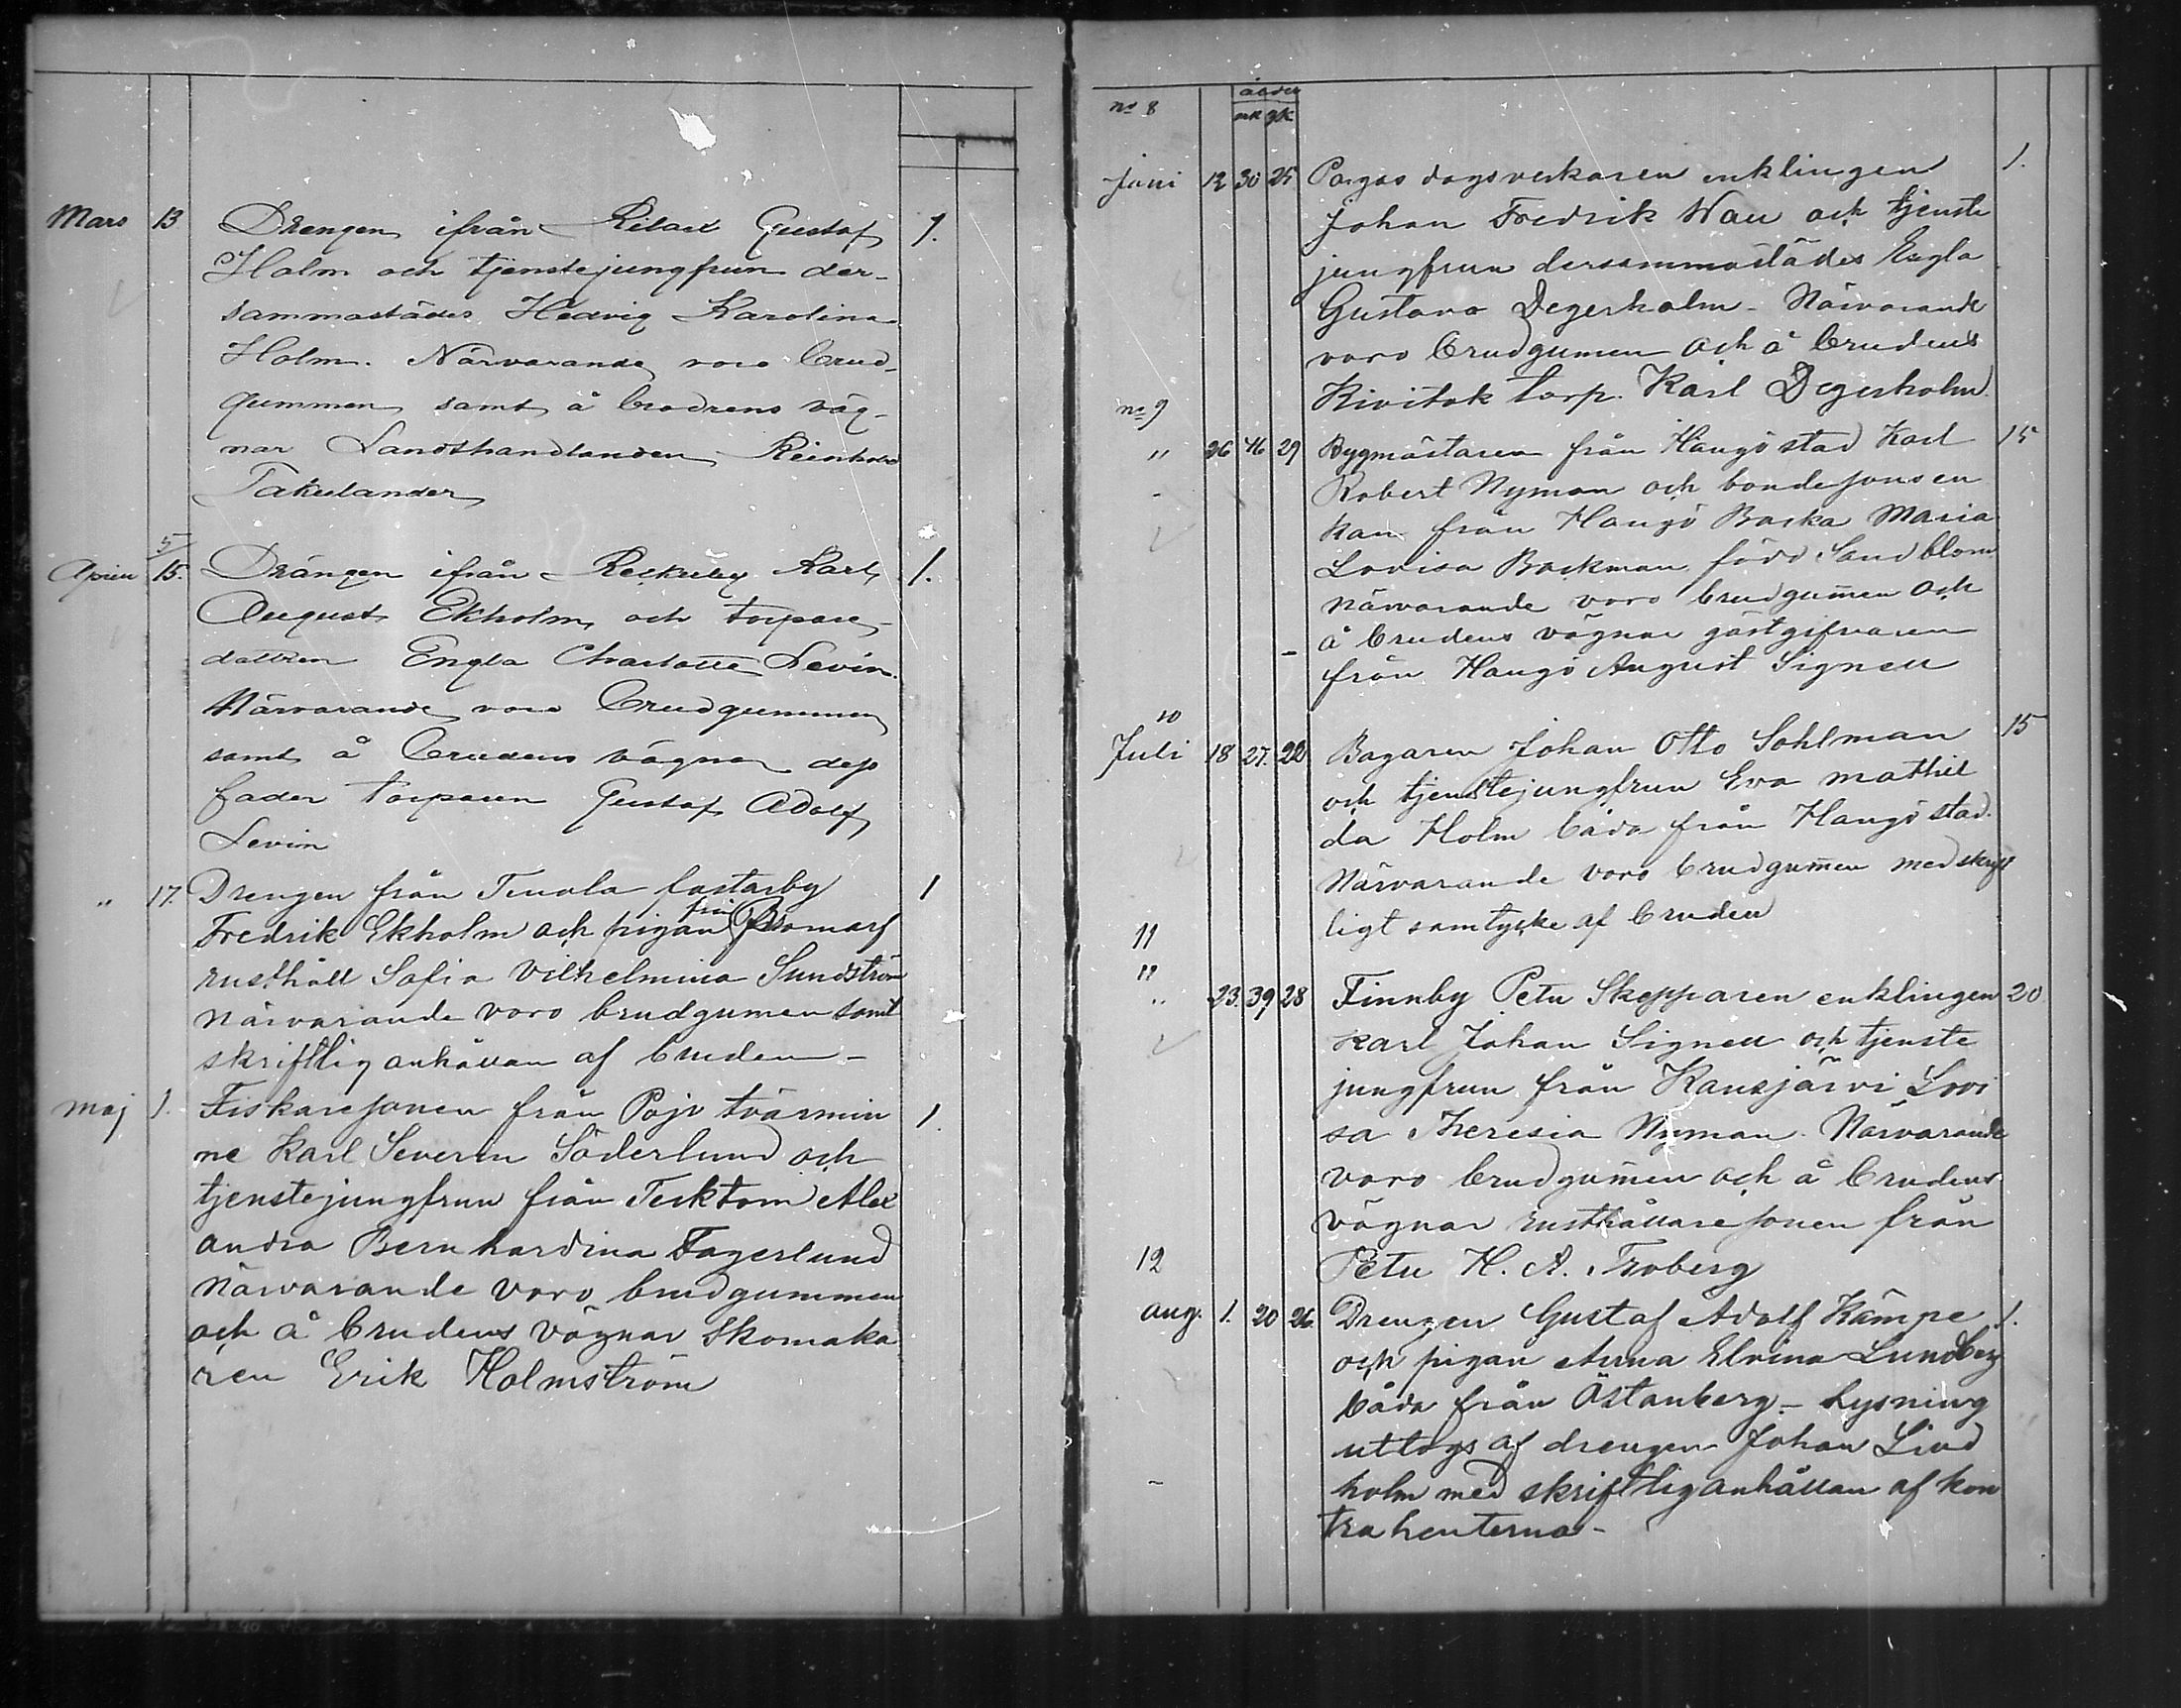 Mars 13 Drengen ifrån Rilax Gustaf 1.
Holm och tjenstejungfrun der-
sammastädes Hedvig Karolina
Holm. Närvarande voro brud-
gummen samt å brudens väg-
nar Landthandlanden Reinhold
Takulander
5/
Aprill 15. Drängen ifrån Reckuby Karl 1.
August Ekholm och torpare-
dottren Engla Charlotte Levin.
Närvarande voro Brudgummen
samt å Brudens vägnar dess
fader torparen Gustaf Adolf
Levin
" 17. Drengen från Tenala fastarby 1
från
Fredrik Ekholm och pigan Bromarf
rusthåll Sofia Vilhelmina Sundström
närvarande voro brudgumen samt
skriftlig anhållan af bruden -
Maj 1. Fiskaresonen från Pojo tvärmin 1.
ne Karl Severin Söderlund och
tjenstejungfrun från Tecktom Alex
andra Bernhardina Fagerlund
närvarande voro brudgummen
och å brudens vägnar Skomaka
ren Erik Holmström
no 8 ålder
mk qk
Juni 12 30 25 Pargas dagsverkaren enklingen 1.
Johan Fredrik Wau och tjenste
jungfrun dersammastädes Engla
Gustava Degerholm - Närvarande
voro brudgumen och å brudens
Kivitok torp. Karl Degerholm
no 9
" 26 46 29 Bygmästaren från Hangö stad Karl 15
Robert Nyman och bondesonsen
kan från Hangö Backa Maria
Lovisa Backman född Sandblom
närvarande voro brudgum̄en och
å brudens vägnar gästgifvaren
från Hangö August Signell
10
Juli 18 27. 22 Bagaren Johan Otto Sohlman 15
och tjenstejungfrun Eva Mathil
da Holm båda från Hangö stad.
Närvarande voro brudgum̄en med skrif
ligt samtycke af bruden
11
"
" 23. 39 28 Finnby Petu Skepparen enklingen 20
Karl Johan Signell och tjenste
jungfrun från Kansjärvi Lovi
sa Theresia Nyman. Närvarande
voro brudgum̄en och å brudens
vägnar rusthållaresonen från
Petu H. A. Froberg
12
Aug. 1. 20 26. Drengen Gustaf Adolf Kämpe 1.
och pigan Anna Elvina Lundberg
båda från Östanberg - Lysning
uttogs af drengen Johan Lind
holm med skriftlig anhållan af kon
trahenterna -